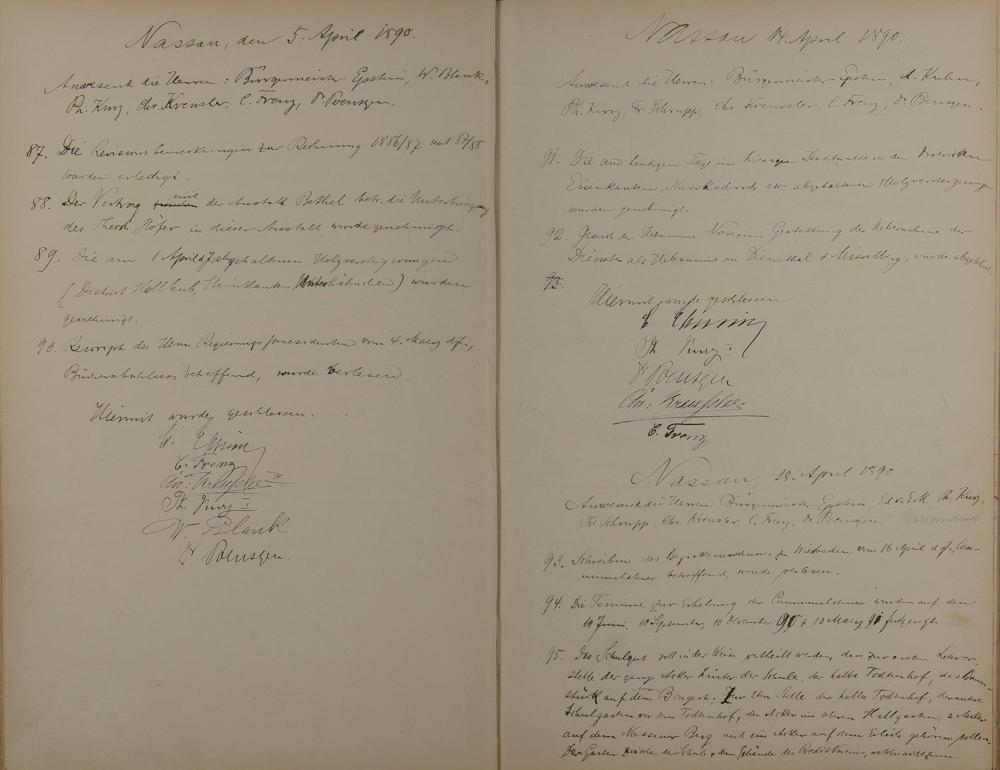 Nassau, den 5. April 1890.
Anwesend die Herren: Bürgermeister Epstein, W. Blank,
Ph. Kurz, Chr. Kreussler, C. Frenz, Dr Poensgen.
87. Die Revisionsbemerkungen zur Rechnung 1886/87 und 87/88
wurden erledigt.
88. Der Vertrag mit der Anstalt Bethel betr. die Unterbringung
des Theod. Höfer in dieser Anstalt wurde genehmigt.
89. Die am 1 April abgehaltenen Holzversteigerungen
(District Steinkanten) wurden
genehmigt.
90. Rescript des Herrn Regierungspraesidenten vom 4. Maerz d.J.,
Bücherabschluss betreffend, wurde verlesen.
Hiermit wurde geschlossen.
C. Frenz
Chr: Kreussler
Ph. Kurz
W Blank
Dr Poensgen.
Nassau 14. April 1890.
Anwesend die Herren: Bürgermeister Epstein, A. Kuhn,
Ph. Kurz, Fr Schrupp, Chr. Kreussler, C. Frenz, Dr. Poensgen.
91. Die am heutigen Tage im hiesigen Stadtwalde in den Districten
Eisenkauten, abgehaltenen Holzversteigerungen
wurden genehmigt.
92. Gesuch der Hebamme um Gestattung der Uebernahme der
Dienste als Hebamme in Dienethal & Misselberg, wurde abgelehnt.
93.
Hiermit wurde geschlossen
Ph. Kurz
Dr Poensgen
Chr: Kreussler
C. Frenz
Nassau, 28. April 1890
Anwesend die Herren: Bürgermeister Epstein, Ph. Kurz,
Fr. Schrupp, Chr. Kreussler, C. Frenz, Dr Poensgen.
93. Schreiben des Bezirksausschusses zu Wiesbaden vom 16 April d.J., Com-
munalsteuer betreffend, wurde verlesen.
94. Die Termine zur Erhebung der Communalsteuer wurden auf den
10 Juni, 10 September, 10 Dezember 90 & 10 Maerz 91 festgesetzt.
95. Das Schulgut soll in der Weise vertheilt werden, dass zur ersten Lehrer-
stelle der ganze Acker hinter der Schule, der halbe Todtenhof, das Baum-
stück auf dem Bongert; Zur 2ten Stelle der halbe Todtenhof, der
Schulgarten vor dem Todtenhof, der Acker im oberen Hallgarten, 2 Aecker
auf dem Nassauer Berg und ein Acker auf dem gehören sollen.
Der Garten zwischen der Schule & dem Gebäude des Creditvereins,